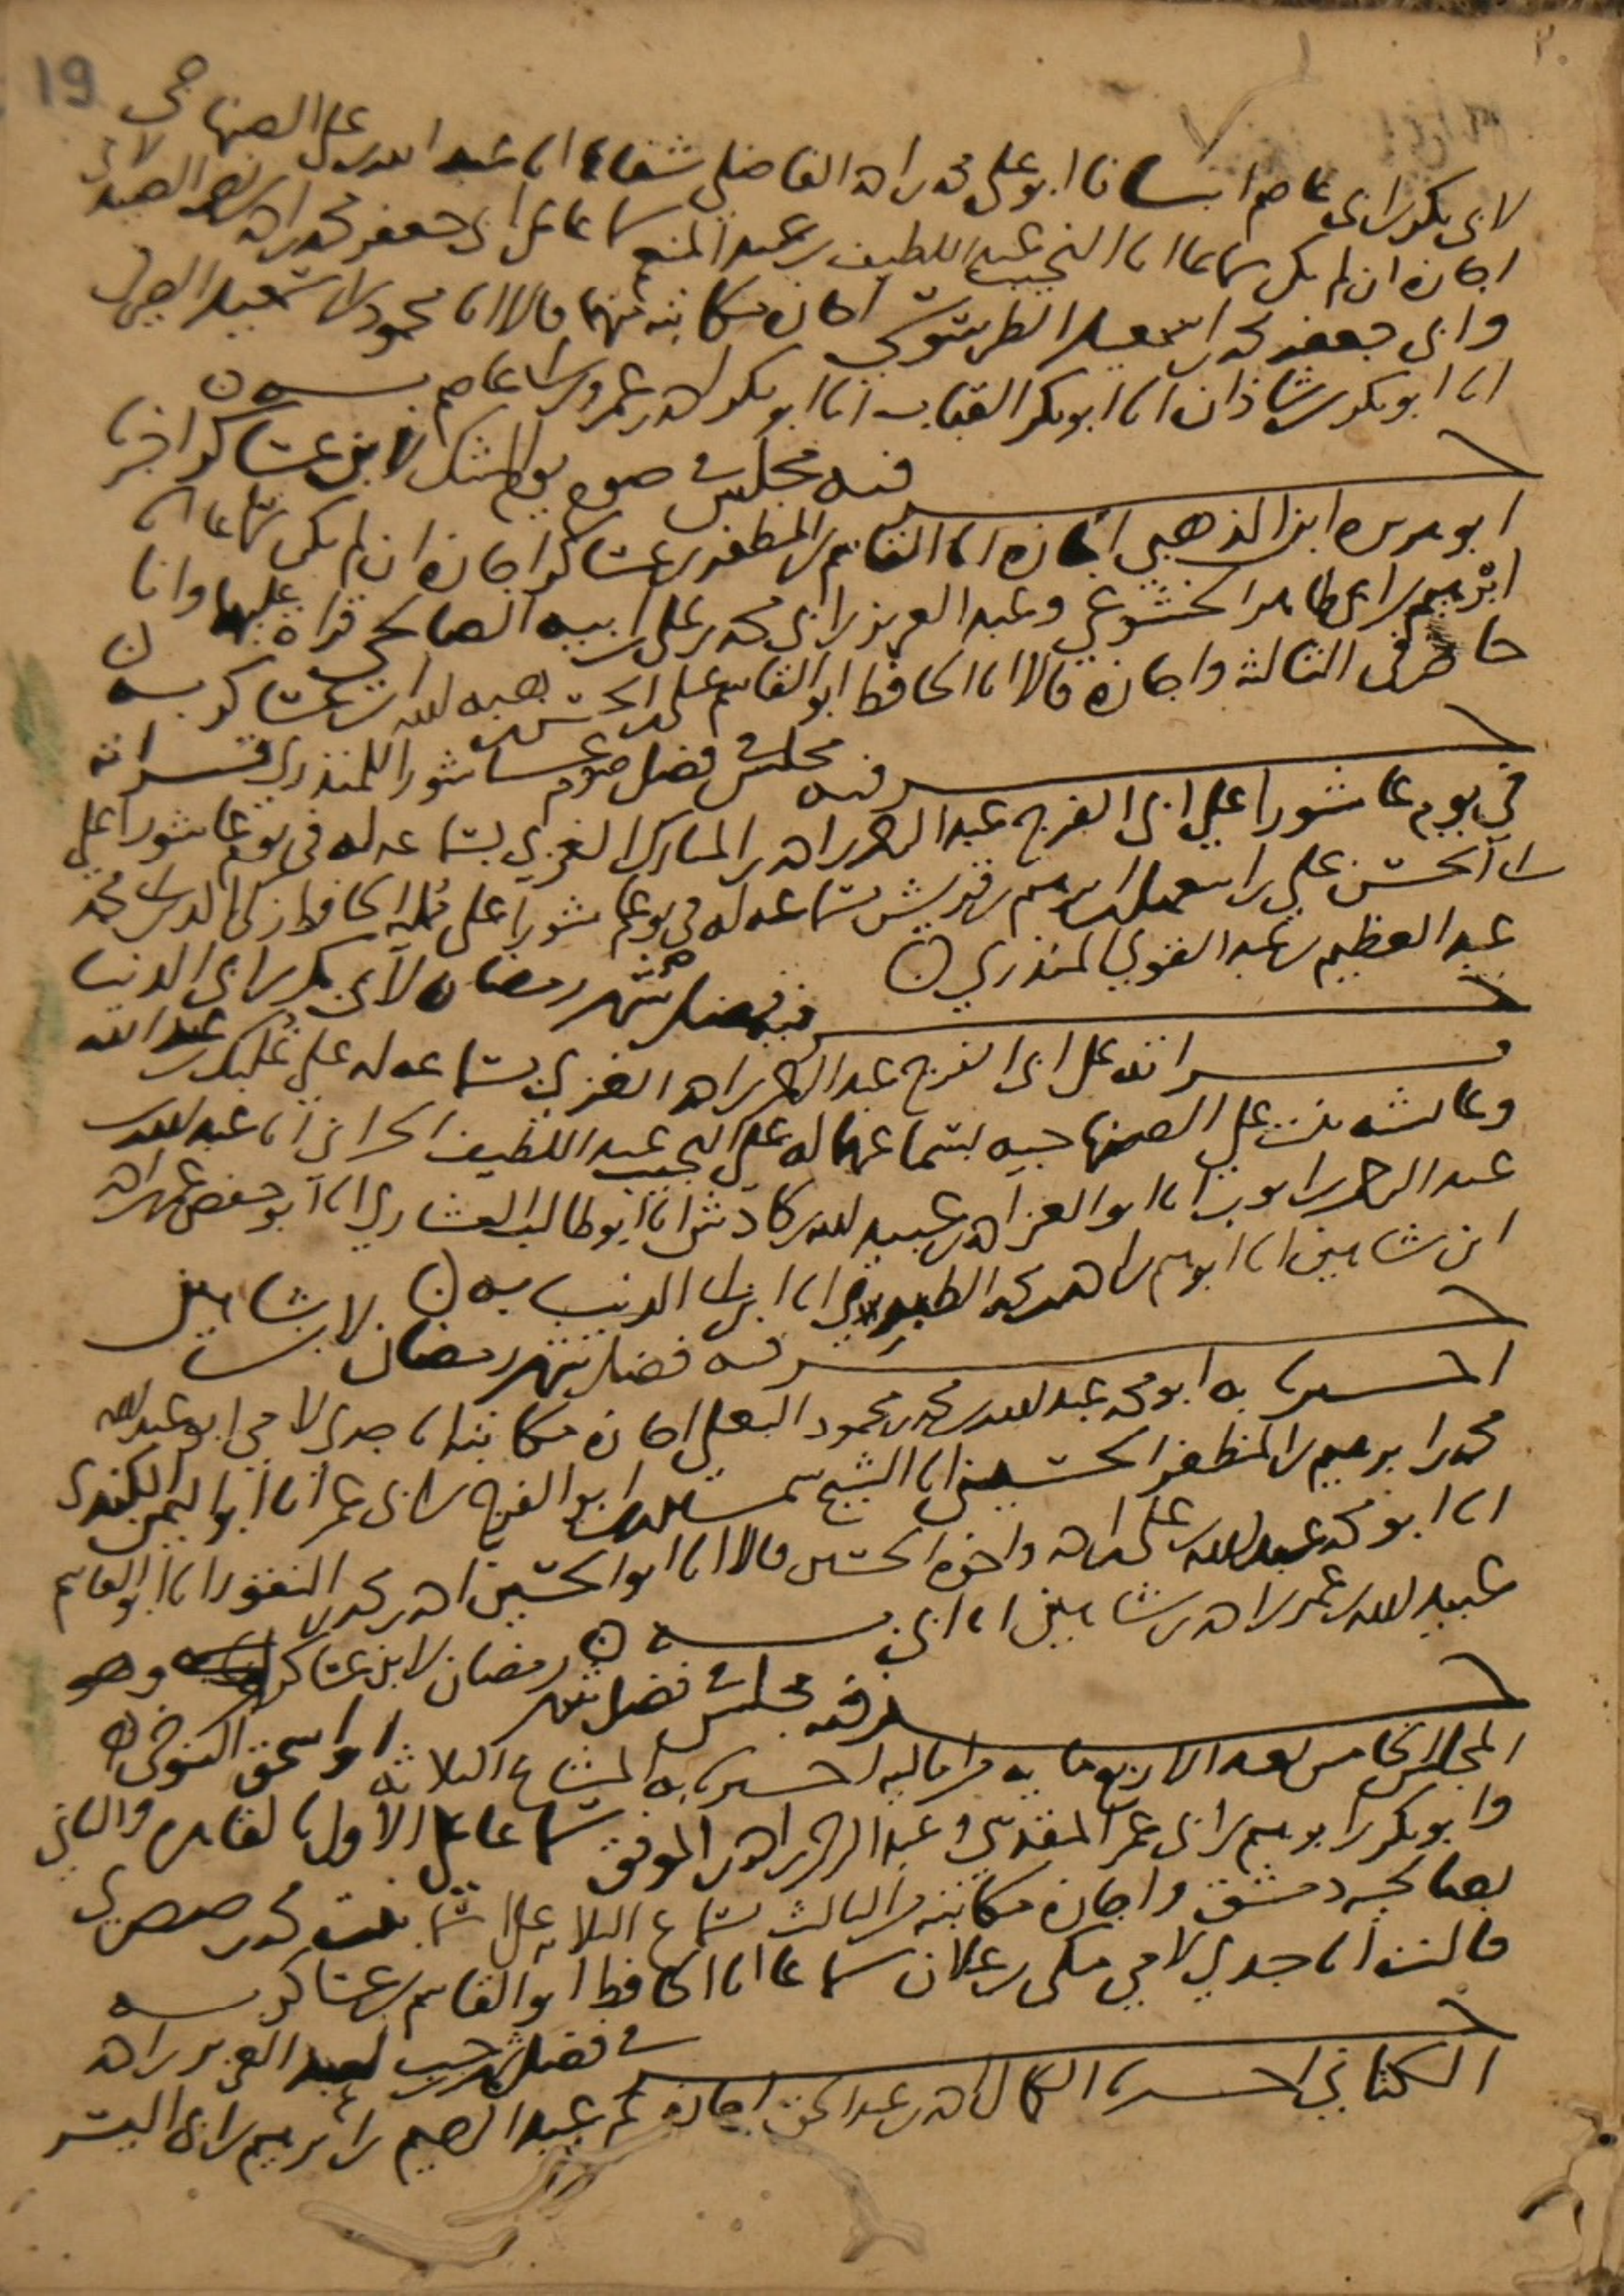 19
لابي بكر بن ابي عاصم انبانا ابو علي محمد بن احمد الفاضلي شفاها انا عبد الله بن علي الصنهاجي
اجازة ان لم يكن سماعا انا النجيب عبد اللطيف بن عبد المنعم سماعا على ابي جعفر محمد بن احمد بن نصر الصيدلاني
وابي جعفر محمد بن اسمعيل الطرسوسي اجازة مكاتبة منهما قالا انا محمود بن اسمعيل الصيرفي
انا ابو بكر بن شاذان انا ابو بكر القباب انا ابو بكر احمد بن عمرو بن ابي عاصم به
جزء فيه مجلس صوم يوم الشك لابن عساكر اخبرنا
ابو هريرة ابن الذهبي اجازة انا القاسم بن المظفر بن عساكر اجازة ان لم يكن سماعا انا
ابرهيم بن ابي طاهر الخشوعي وعبد العزيز بن ابي محمد بن علي بن ابيه الصالحي قراءة عليهما وانا
حاضر في الثالثة واجازة قالا انا الحافظ ابو القاسم علي بن الحسن بن هبة الله بن عساكر به
جزء فيه مجلس فضل صوم عاشورا للمنذري قراته
في يوم عاشورا علي ابي الفرج عبد الرحمن بن احمد بن المبارك الغزي بسماعه له في يوم عاشورا علي
ابي الحسن علي بن اسمعيل بن ابرهيم بن قريش بسماعه له في يوم عاشورا على ممليه الحافظ زكي الدين ابي محمد
عبد العظيم بن عبد القوي المنذري
جزء فيه فضل شهر رمضان لابي بكر بن ابي الدنيا
قراته على ابي الفرج عبد الرحمن بن احمد الغزي بسماعه له علي علي بن عبد الله
وعائشه بنت علي الصنهاجيه بسماعهما له على النجيب عبد اللطيف الحراني انا عبد الله بن
عبد الرحمن بن ايوب انا ابو العز احمد بن عبيد الله بن كادش انا ابو طالب العشاري انا ابو حفص عمر بن احمد
ابن شاهين انا ابرهيم بن احمد بن محمد انا ابن ابي الدنيا به
جزء فيه فضل شهر رمضان لابن شاهين
اخبرنا به ابو محمد عبد الله بن محمد بن محمود البعلي اجازة مكاتبة انا جدي لامي ابو عبد الله
محمد بن ابرهيم بن المظفر الحسيني انا الشيخ شمس الدين ابو الفرج بن ابي عمر انا ابو اليمن الكندي
انا ابو محمد عبد الله بن علي بن احمد واخوه الحسين قالا انا ابو الحسين احمد بن محمد بن النقور انا ابو القاسم
عبيد الله بن عمر بن احمد بن شاهين انا ابي به
جزء فيه مجلس فضل شهر رمضان لابن عساكر وهو
المجلس الخامس بعد الاربع مايه من اماليه اخبرنا به المشايخ الثلاثة ابو اسحق التنوخي
وابو بكر بن ابرهيم بن ابي عمر المقدسي وعبد الرحمن بن احمد بن الموفق سماعا على الاول بالقاهره والثاني
بصالحية دمشق واجازة مكاتبة من الثالث بسماع الثلاثه على اسما بنت محمد بن صصرى
قالت انا جدي لامي مكي بن علان سماعا انا الحافظ ابو القاسم بن عساكر به
جزء في فضل رجب لعبد العزيز بن احمد
الكتاني اخبرنا الكمال احمد بن عبد الحق اجازة عن عبد الرحيم بن ابرهيم بن ابي اليسر